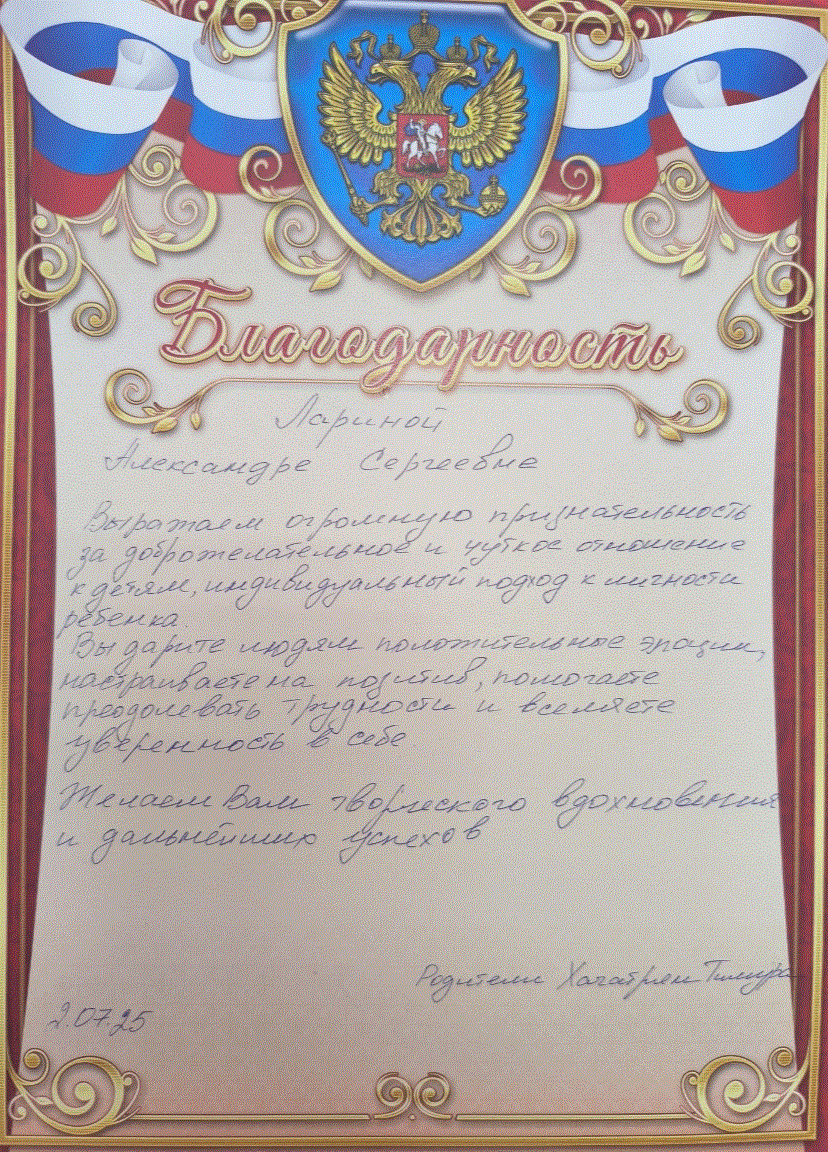 Благодарность
Лариной
Александре Сергеевне
Выражаем огромную признательность
за доброжелательное и чуткое отношение
к детям, индивидуальный подход к личности
ребенка.
Вы дарите людям положительные эмоции,
настраиваете на позитив, помогаете
преодолевать трудности и вселяете
уверенность в себе.
Желаем Вам творческого вдохновения
и дальнейших успехов
Родители Хачатрян Тимура
2.07.25